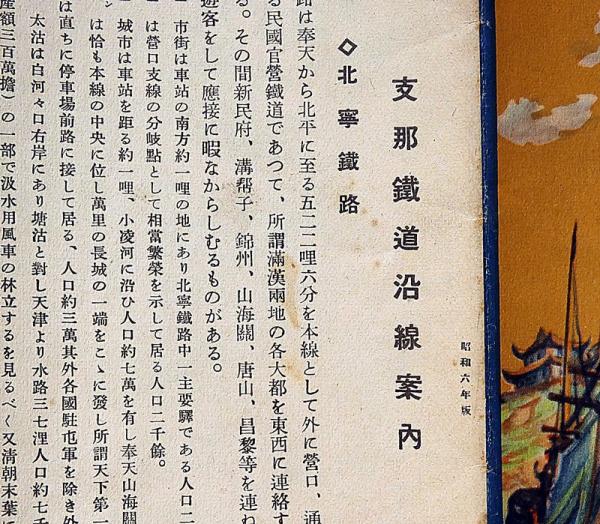 支那鐵道沿線案內
昭和六年版
◇北寧鐵路
路は奉天から北平に至る五二二哩六分を本線として外に營口、通
る民國官營鐵道であつて、所謂滿漢兩地の各大都を東西に連絡す
る。その間新民府、溝帮子、錦州、山海關、唐山、昌黎等を連ね
遊客をして應接に暇なからしむるものがある。
市街は車站の南方約一哩の地にあり北寧鐵路中一主要驛である人口二
は營口支線の分岐點として相當繁榮を示して居る人口二千餘。
城市は車站を距る約一哩、小凌河に沿ひ人口約七萬を有し奉天山海關
は恰も本線の中央に位し萬里の長城の一端をこゝに發し所謂天下第一
は直ちに停車場前路に接して居る、人口約三萬其外各國駐屯軍を除き外
太沽は白河々口右岸にあり塘沽と對し天津より水路三七浬人口約七千
産額三百萬擔)の一部で汲水用風車の林立するを見るべく又清朝末葉に